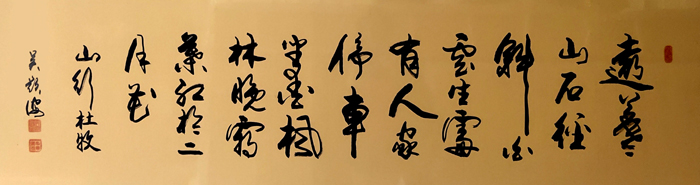 遠上寒
山石徑
斜白
雲生處
有人家
停車
坐愛楓
林晚霜
葉紅於二
月花
山行 杜牧